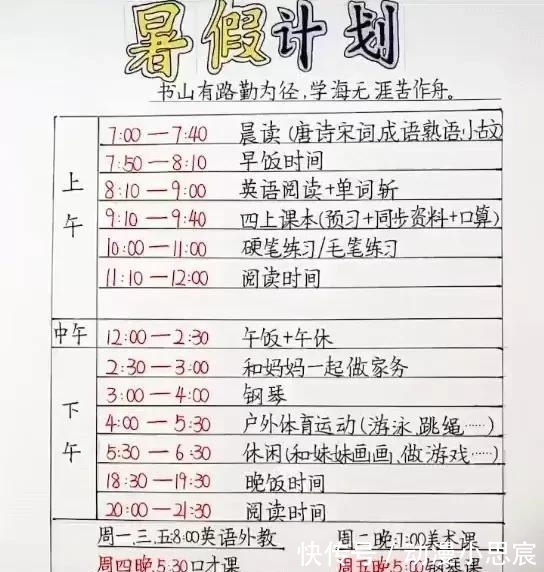 暑假计划
书山有路勤为径，学海无涯苦作舟。
上午
7:00—7:40 晨读(唐诗宋词成语熟语小古文
7:50—8:10 早饭时间
8:10—9:00 英语阅读+单词斩
9:10—9:40 四上课本(预习+同步资料+口算)
10:00—11:00 硬笔练习/毛笔练习
11:10—12:00 阅读时间
中午 12:00—2:30 午饭+午休
下午
2:30—3:00 和妈妈一起做家务
3:00—4:00 钢琴
4:00—5:30 户外体育运动(游泳、跳绳……)
5:30—6:30 休闲(和妹妹画画、做游戏……)
18:30—19:30 晚饭时间
20:00—21:30 阅读时间
周一、三、五8:00英语外教 周二晚7:00美术课
周四晚5:30口才课 周五晚5:00钢琴课
快传号/动漫小思宸